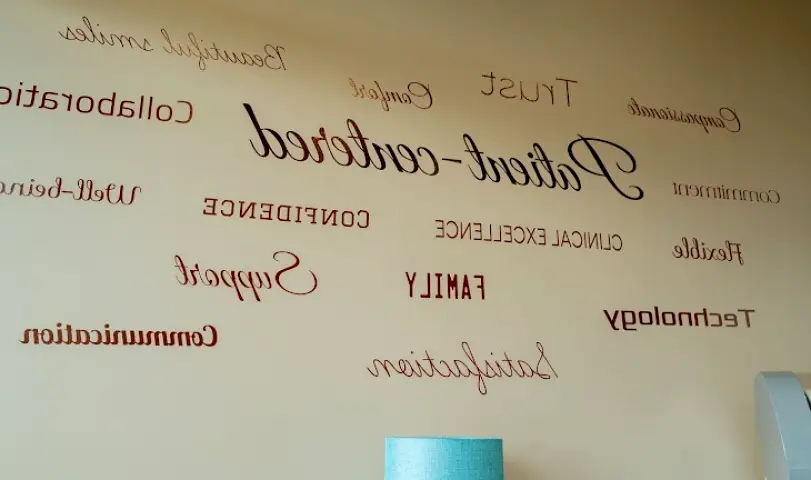 Beautiful smiles
Trust
Comfort
Compassionate
Collaboratio
Patient-centered
Commitment
Well-being
CONFIDENCE
CLINICAL EXCELLENCE
Flexible
Support
FAMILY
Technology
Communication
Satisfaction